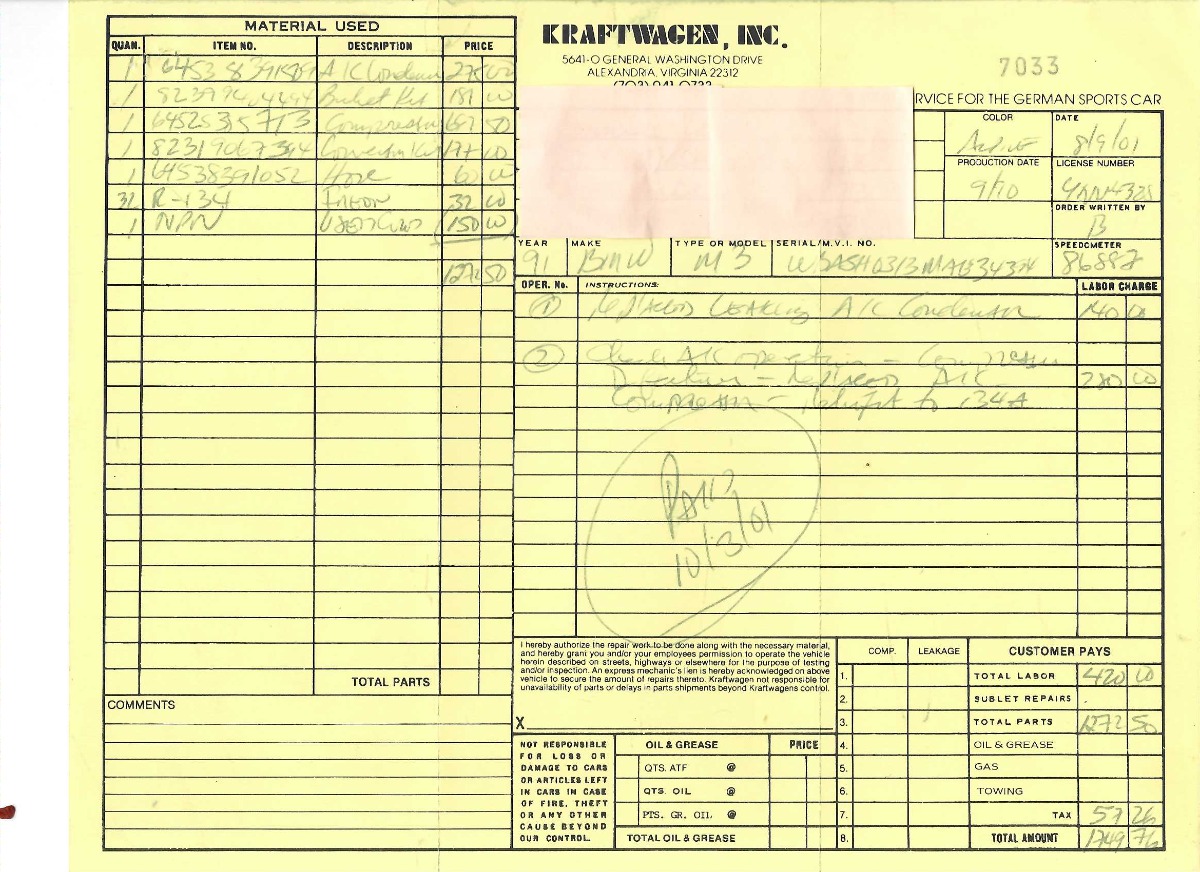 MATERIAL USED
QUAN. ITEM NO. DESCRIPTION PRICE
1 A/C Conden 275 00
1 Bucket Kit 181 00
1 64525315713 Compressor 50
1 82319067394 Convertn Kit 00
1 64538391052 Hose 60 00
32 R-134 FREON 32 00
1 NPN 150 00
1272 50
TOTAL PARTS
COMMENTS
KRAFTWAGEN, INC.
5641-O GENERAL WASHINGTON DRIVE
ALEXANDRIA, VIRGINIA 22312
7033
RVICE FOR THE GERMAN SPORTS CAR
COLOR DATE
8/9/01
PRODUCTION DATE LICENSE NUMBER
9/90
ORDER WRITTEN BY
B
YEAR MAKE TYPE OR MODEL SERIAL/M.V.I. NO. SPEEDOMETER
91 BMW M3
OPER. No. INSTRUCTIONS: LABOR CHARGE
1 Replaced LEAKING A/C Condenser 140 00
2 Check A/C operation - Compressor
Defective - Replaced A/C 280 00
Compressor - Retrofit to 134A
PAID
10/3/01
I hereby authorize the repair work to be done along with the necessary material,
and hereby grant you and/or your employees permission to operate the vehicle
herein described on streets, highways or elsewhere for the purpose of testing
and/or inspection. An express mechanic's lien is hereby acknowledged on above
vehicle to secure the amount of repairs thereto. Kraftwagen not responsible for
unavailability of parts or delays in parts shipments beyond Kraftwagens control.
X
NOT RESPONSIBLE
FOR LOSS OR
DAMAGE TO CARS
OR ARTICLES LEFT
IN CARS IN CASE
OF FIRE, THEFT
OR ANY OTHER
CAUSE BEYOND
OUR CONTROL.
OIL & GREASE PRICE
QTS. ATF @
QTS. OIL @
PTS. GR. OIL @
TOTAL OIL & GREASE
COMP. LEAKAGE CUSTOMER PAYS
1. TOTAL LABOR 420 00
2. SUBLET REPAIRS
3. TOTAL PARTS 1272 50
4. OIL & GREASE
5. GAS
6. TOWING
7. TAX 57 26
8. TOTAL AMOUNT 1749 76